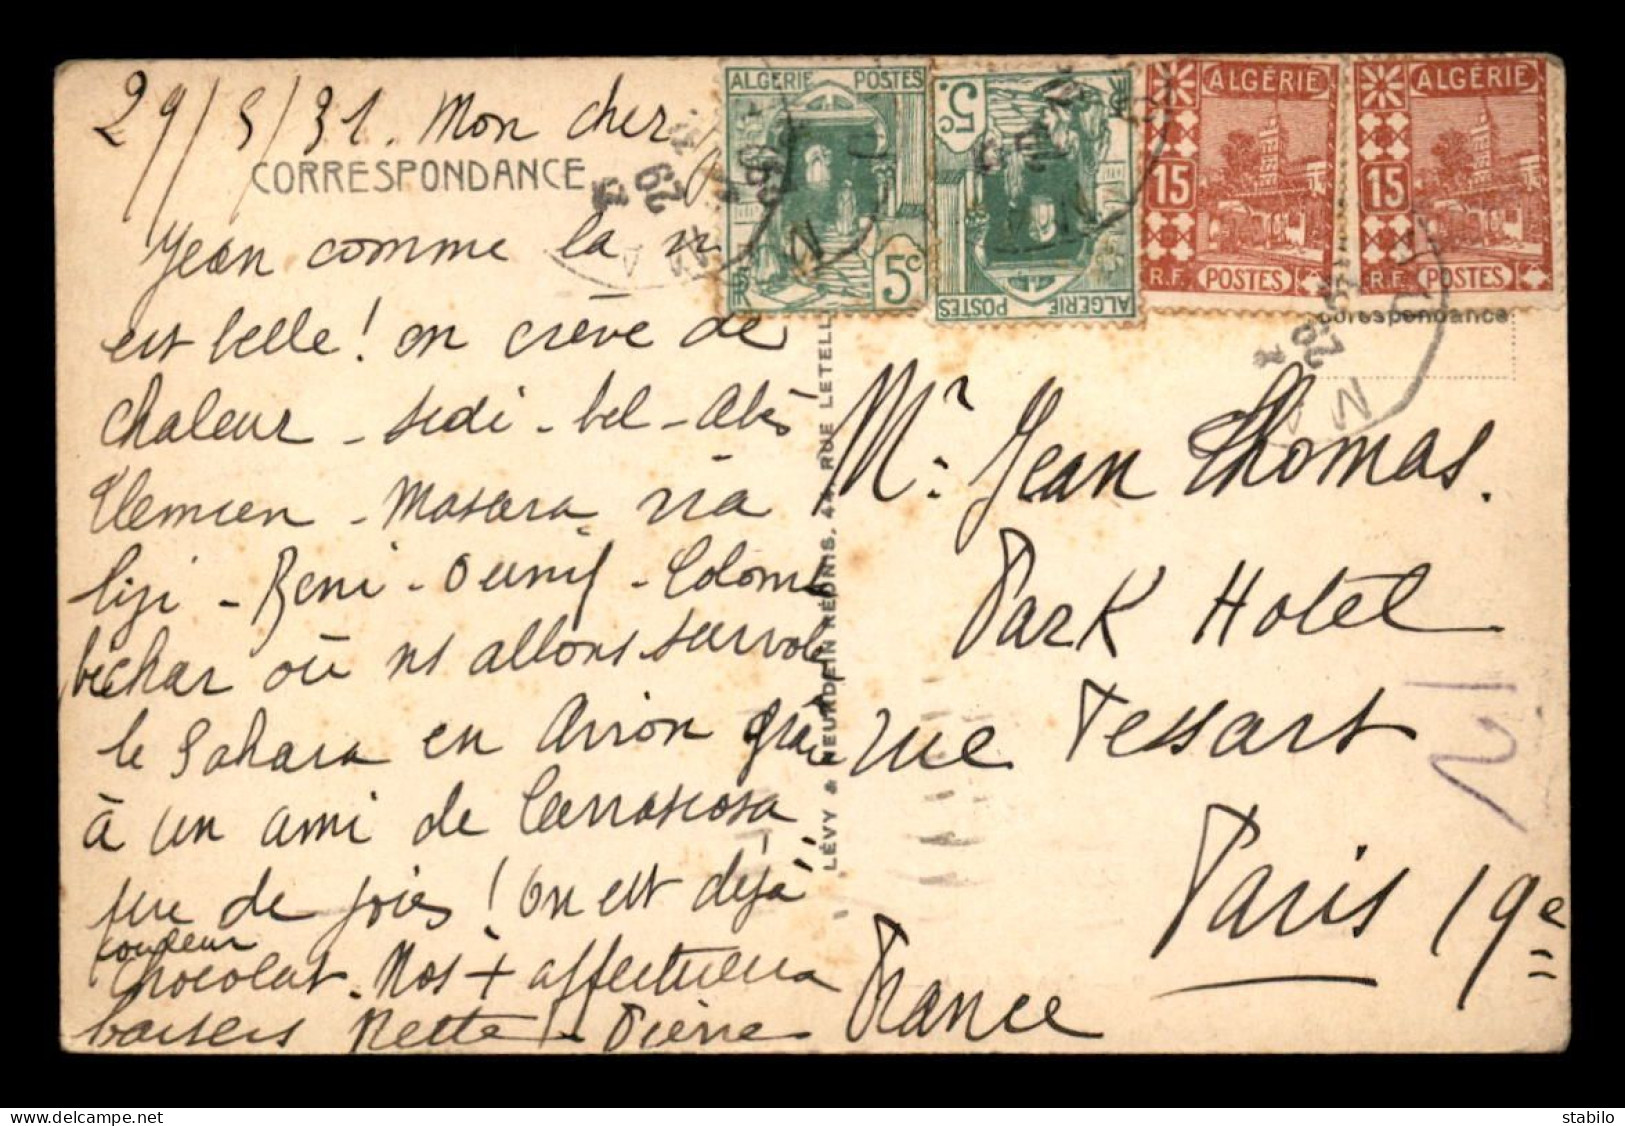 29/5/31. Mon cher
CORRESPONDANCE
Jean comme la
est belle! on crève de
chaleur - sidi - bel - abès
Tlemcen - Mascara via
- Beni - Ounif - Colomb
bechar où ns allons survoler
le Sahara en avion grâce
à un ami de Carrascosa
de joies! On est déjà
couleur
chocolat. Nos + affectueux
baisers Nette - Pierre
ALGERIE POSTES
5c
5c
ALGERIE POSTES
ALGÉRIE
15
R.F. POSTES
ALGÉRIE
15
R.F. POSTES
29
29
Correspondance
LÉVY & NEURDEIN RÉUNIS, 44, RUE LETELL
Mr. Jean Thomas.
Park Hotel
rue Tessart
Paris 19e
France
stabilo